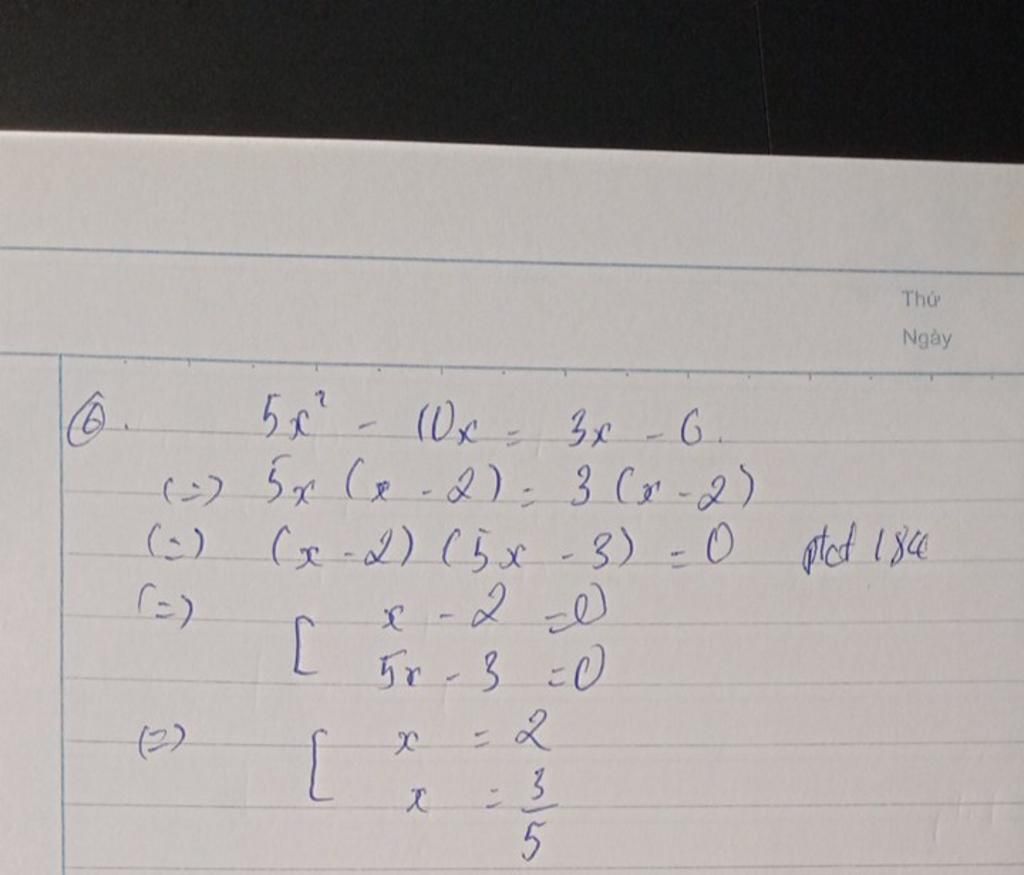 Thứ
Ngày
⑥. 5x² - 10x = 3x - 6.
(=) 5x (x - 2) = 3 (x - 2)
(=) (x - 2) (5x - 3) = 0
(=) [ x - 2 = 0
5x - 3 = 0
(=) [ x = 2
x = 3/5